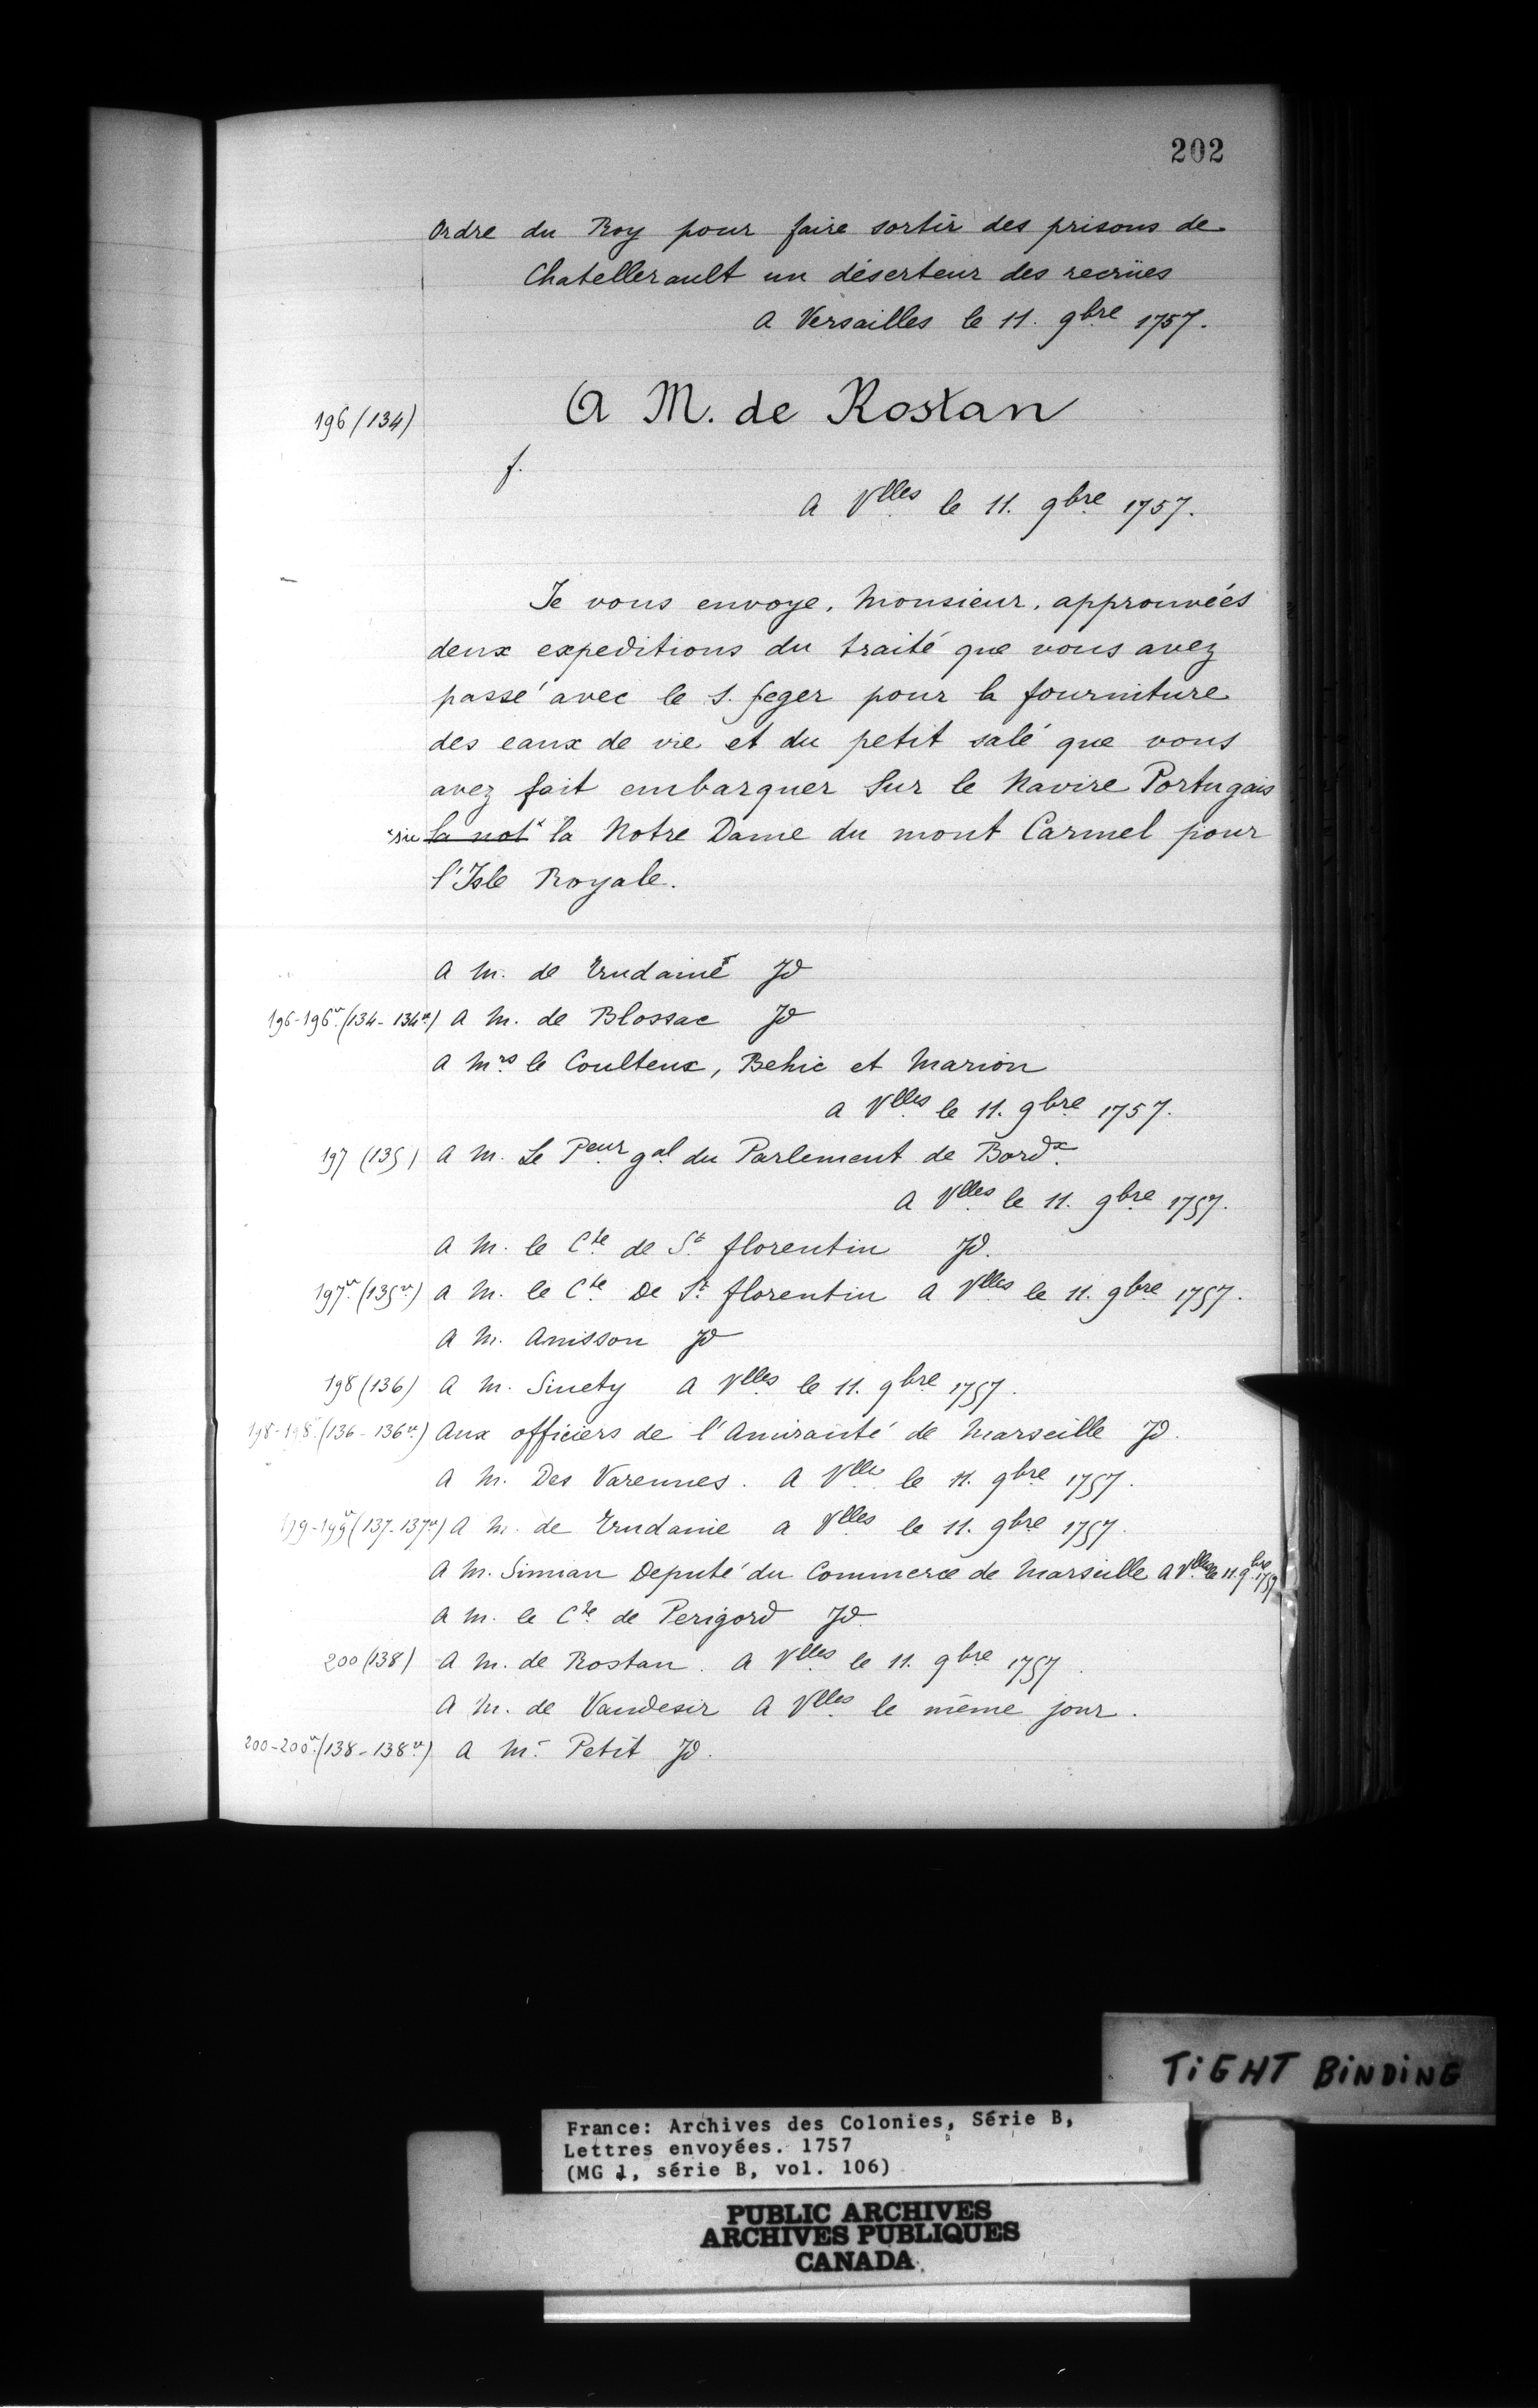 202
Ordre du Roy pour faire sortir des prisons de
Chatellerault un déserteur des recrües
A Versailles le 11. 9bre 1757.
196 (134) A M. de Rostan
f.
A Vlles le 11. 9bre 1757.
Je vous envoye, Monsieur, approuvéés
deux expeditions du traité que vous avez
passé avec le S. feger pour la fourniture
des eaux de vie et du petit salé que vous
avez fait embarquer sur le Navire Portugais
la not x la Notre Dame du mont Carmel pour
l'Isle Royale.
A M. de Trudaine Jd
196-196vo (134-134vo) A M. de Blossac Jd
A Mrs le Coulteux, Behic et Marion
a Vlles le 11. 9bre 1757.
197 (135) A M. Le Peur gal du Parlement de Bordx.
A Vlles le 11. 9bre 1757.
A M. le Cte de St florentin Jd.
197vo (135vo) A M. le Cte De St florentin A Vlles le 11. 9bre 1757.
A M. Anisson Jd
198 (136) A M. Sinety A Vlles le 11. 9bre 1757.
198-198vo (136-136vo) Aux officiers de l'Amirauté de Marseille Jd.
A M. Des Varennes. A Vlles le 11. 9bre 1757.
199-199vo (137-137vo) A M. de Trudaine a Vlles le 11. 9bre 1757.
A M. Simian Deputé du Commerce de Marseille A Vlles le 11. 9bre 1757
A M. le Cte de Perigord Jd.
200 (138) A M. de Rostan. A Vlles le 11. 9bre 1757.
A M. de Vaudesir A Vlles le même jour.
200-200vo (138-138vo) A Mr Petit Jd.
TIGHT BINDING
France: Archives des Colonies, Série B,
Lettres envoyées. 1757
(MG 1, série B, vol. 106)
PUBLIC ARCHIVES
ARCHIVES PUBLIQUES
CANADA